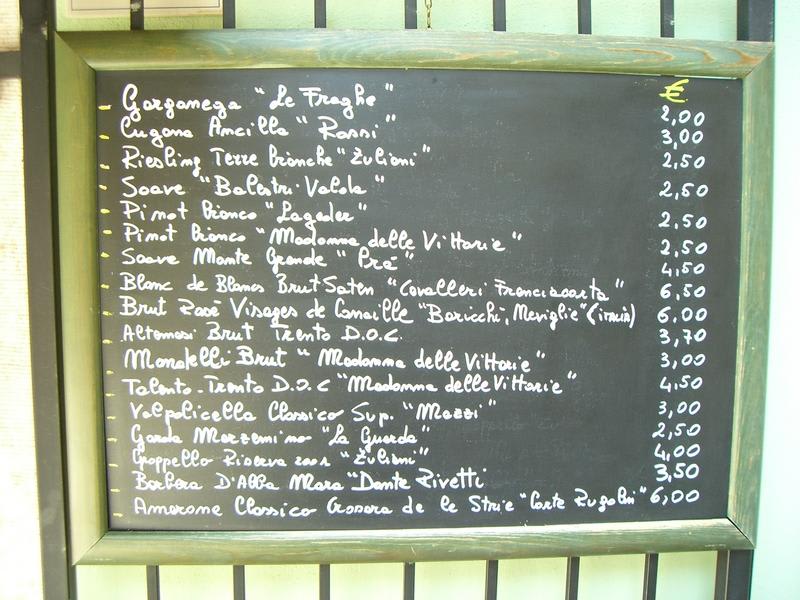 €
Garganega "Le Fraghe" 2,00
Lugana Ancilla "Rossi" 3,00
Riesling Terre bianche "Zuliani" 2,50
Soave "Balestri Valda" 2,50
Pinot bianco "Lageder" 2,50
Pinot bianco "Madonna delle Vittorie" 2,50
Soave Monte Grande "Prà" 4,50
Blanc de Blancs Brut Saten "Cavalleri Franciacorta" 6,50
Brut Rosè Visages de Canaille "Baricchi, Neviglie" (italia) 6,00
Altemasi Brut Trento D.O.C. 3,70
Brut "Madonna delle Vittorie" 3,00
Talento-Trento D.O.C "Madonna delle Vittorie" 4,50
Valpolicella Classico Sup. "Mazzi" 3,00
Garda Marzemino "La Guarda" 2,50
Groppello Riserva 2001 "Zuliani" 4,00
Barbera D'Alba Mara "Dante Rivetti 3,50
Amarone Classico Grosara de le Strie "Corte Rugolin" 6,00